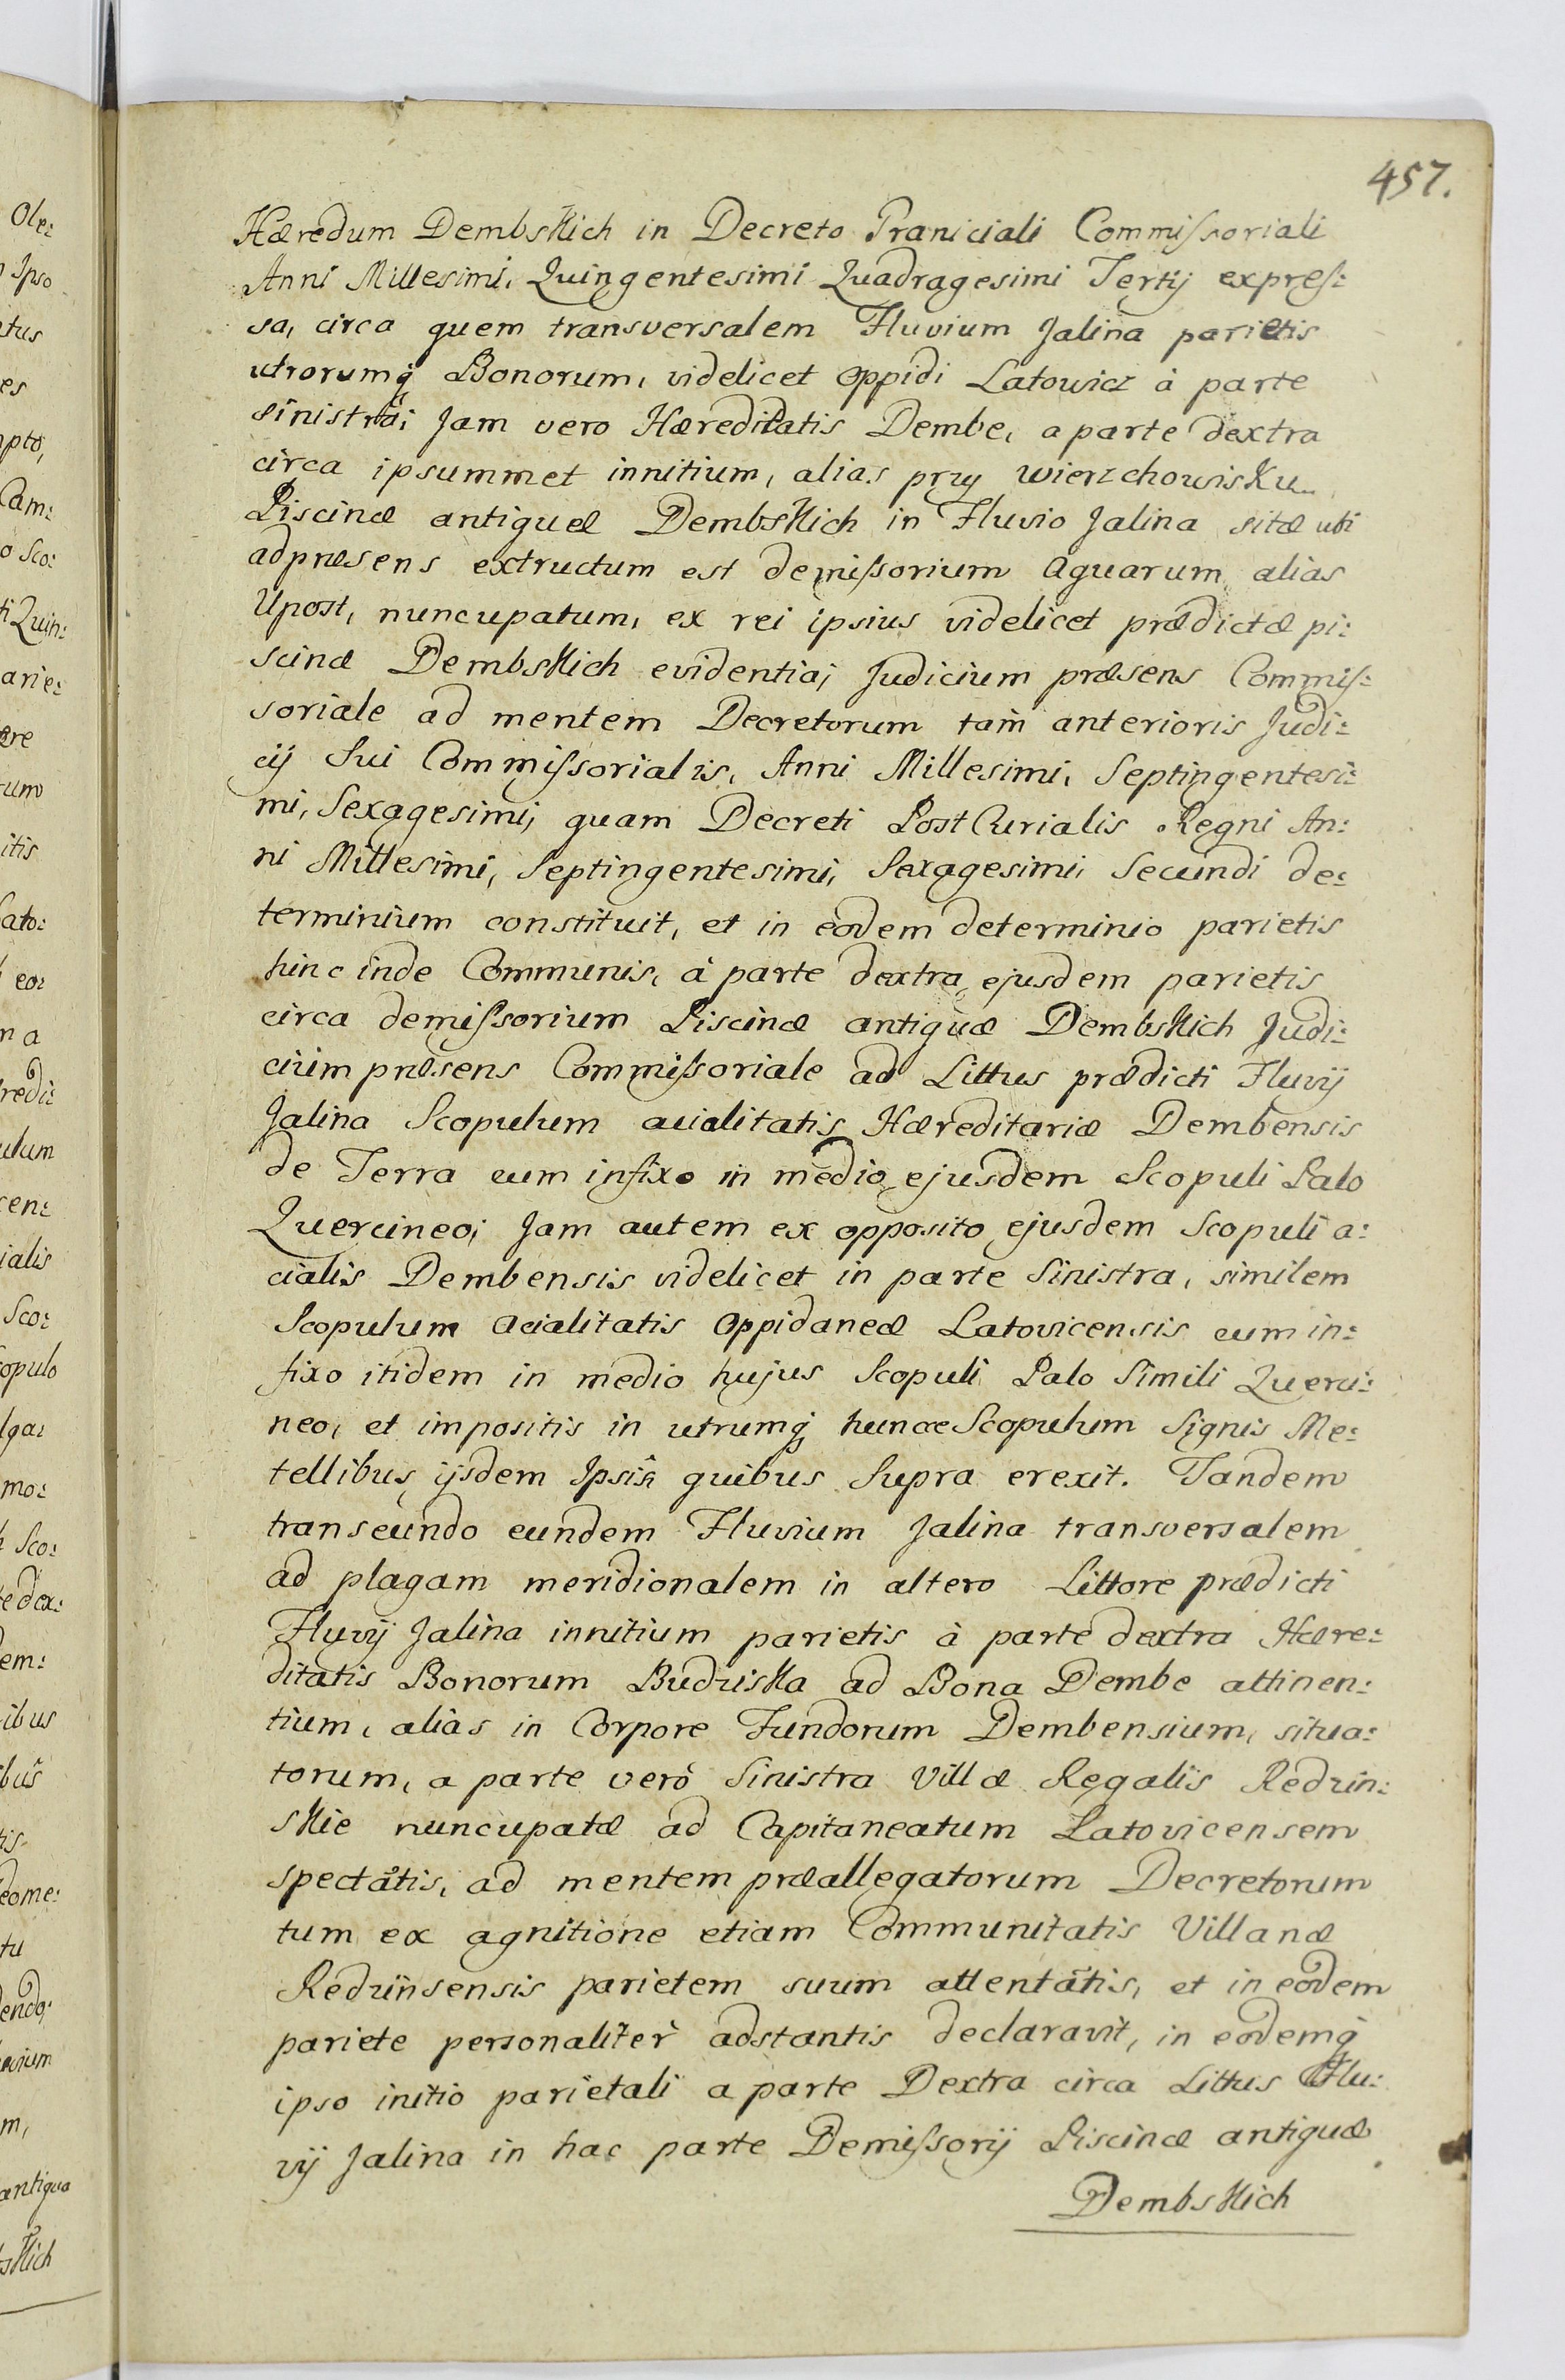 457.
Hæredum Dembskich in Decreto Graniciali Commissoriali
Anni Millesimi, Quingentesimi Quadragesimi Tertij expres:
sa, circa quem transversalem Fluvium Jalina parietis
utrorumq́ Bonorum, videlicet oppidi Latowicz à parte
sinistra; Jam vero Hæreditatis Dembe, a parte dextra
circa ipsummet innitium, alias przy wierzchowisku
Piscinæ antiquæ Dembskich in Fluvio Jalina sitæ ubi
adpræsens extructum est demissorium aquarum alias
Upost, nuncupatum, ex rei ipsius videlicet prædictæ pi:
scinæ Dembskich evidentia; Judicium præsens Commis:
soriale ad mentem Decretorum tam anterioris Judi:
cij sui Commissorialis, Anni Millesimi, Septingentesi:
mi, Sexagesimi, quam Decreti Post Curialis Regni An:
ni Millesimi, Septingentesimi, Sexagesimi, Secundi de:
terminium constituit, et in eodem determinio parietis
hinc inde Communis, à parte dextra ejusdem parietis
circa demissorium Piscinæ antiquæ Dembskich Judi:
cium præsens Commissoriale ad Littus prædicti Fluvij
Jalina Scopulum acialitatis Hæreditariæ Dembensis
de Terra cum infixo in medio ejusdem Scopuli Palo
Quercineo; Jam autem ex opposito ejusdem Scopuli a:
cialis Dembensis videlicet in parte Sinistra, similem
Scopulum acialitatis oppidaneæ Latovicensis cum in:
fixo itidem in medio hujus Scopuli Palo Simili Querci:
neo, et impositis in utrumq́ hunce Scopulum Signis Me:
tellibus ijsdem Ipsis quibus Supra erexit. Tandem
transeundo eundem Fluvium Jalina transversalem
ad plagam meridionalem in altero Littore prædicti
Fluvij Jalina innitium parietis à parte dextra Hære:
ditatis Bonorum Budziska ad Bona Dembe attinen:
tium, alias in Corpore Fundorum Dembensium, situa:
torum, a parte verò Sinistra Villæ Regalis Redzin:
skie nuncupatæ ad Capitaneatum Latovicensem
spectatis, ad mentem præallegatorum Decretorum
tum ex agnitione etiam Communitatis Villanæ
Redzinsensis parietem suum attentatis, et in eodem
pariete personaliter adstantis declaravit, in eodemq́
ipso initio parietali a parte Dextra circa Littus Flu:
vij Jalina in hac parte Demissorij Piscinæ antiquæ
Dembskich